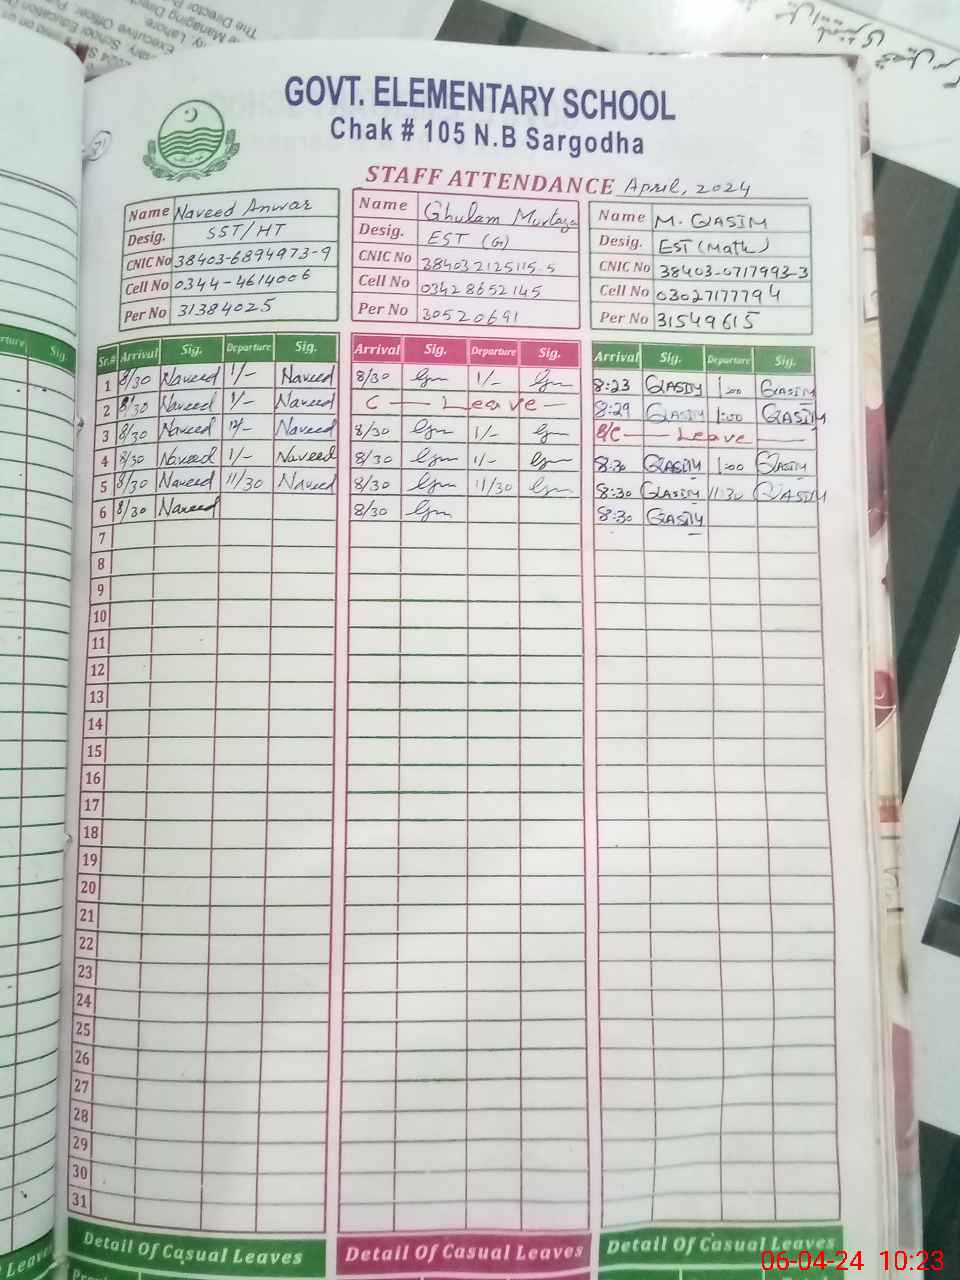 GOVT. ELEMENTARY SCHOOL
Chak # 105 N.B Sargodha
STAFF ATTENDANCE April, 2024
Name Naveed Anwar
Desig. SST/HT
CNIC No 38403-6894973-9
Cell No 0344-4614006
Per No 31384025
Name Ghulam Murtaza
Desig. EST (G)
CNIC No 384032125115-5
Cell No 03428652145
Per No 30520691
Name M. QASIM
Desig. EST (Math)
CNIC No 38403-0717993-3
Cell No 03027177794
Per No 31549615
Sr.# Arrival Sig. Departure Sig. Arrival Sig. Departure Sig. Arrival Sig. Departure Sig.
1 8/30 Naveed 1/- Naveed 8/30 1/- 8:23 QASIM 1:00 QASIM
2 8/30 Naveed 1/- Naveed C — Leave — 8:29 QASIM 1:00 QASIM
3 8/30 Naveed 12/- Naveed 8/30 1/- B/C — Leave —
4 8/30 Naveed 1/- Naveed 8/30 1/- 8:30 QASIM 1:00 QASIM
5 8/30 Naveed 11/30 Naveed 8/30 11/30 8:30 QASIM 11:30 QASIM
6 8/30 Naveed 8/30 8:30 QASIM
7
8
9
10
11
12
13
14
15
16
17
18
19
20
21
22
23
24
25
26
27
28
29
30
31
Detail Of Casual Leaves
Detail Of Casual Leaves
Detail Of Casual Leaves
06-04-24 10:23